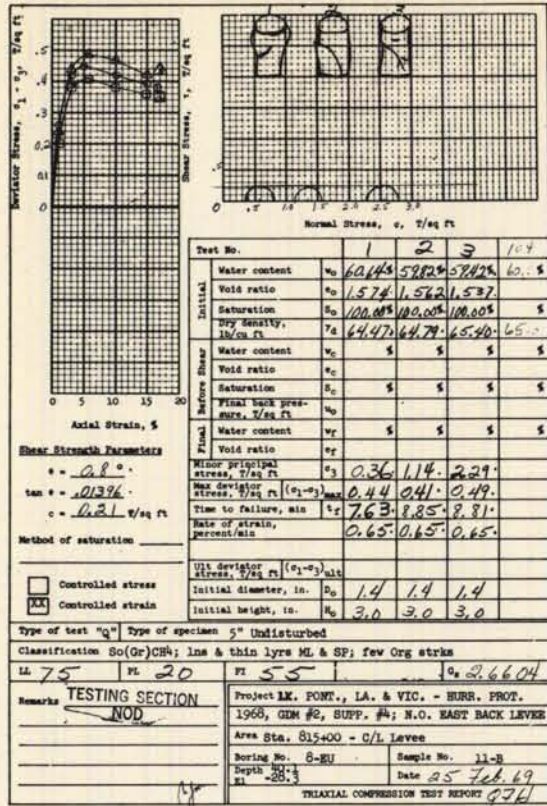 Deviator Stress, σ1 - σ3, T/sq ft
.5
.4
.3
.2
.1
0
0 5 10 15 20
Axial Strain, %
Shear Stress, τ, T/sq ft
1 2 3
.5
0 .5 1.0 1.5 2.0 2.5 3.0
Normal Stress, σ, T/sq ft
Shear Strength Parameters
φ = 0.8°
tan φ = .01396
c = 0.21 T/sq ft
Method of saturation
Controlled stress
XX Controlled strain
Test No. 1 2 3
Initial
Water content w0 60.64% 59.82% 59.42% %
Void ratio e0 1.574 1.562 1.537
Saturation S0 100.00% 100.00% 100.00% %
Dry density, lb/cu ft γd 64.47 64.79 65.40
Before Shear
Water content wc % % % %
Void ratio ec
Saturation Sc % % % %
Final back pressure, T/sq ft u0
Final
Water content wf % % % %
Void ratio ef
Minor principal stress, T/sq ft σ3 0.36 1.14 2.29
Max deviator stress, T/sq ft (σ1-σ3)max 0.44 0.41 0.49
Time to failure, min tf 7.63 8.85 8.81
Rate of strain, percent/min 0.65 0.65 0.65
Ult deviator stress, T/sq ft (σ1-σ3)ult
Initial diameter, in. D0 1.4 1.4 1.4
Initial height, in. H0 3.0 3.0 3.0
Type of test "Q" Type of specimen 5" Undisturbed
Classification So(Gr)CH4; lns & thin lyrs ML & SP; few Org strks
LL 75 PL 20 PI 55 Gs 2.6604
Remarks TESTING SECTION
NOD
Project LK. PONT., LA. & VIC. - HURR. PROT.
1968, GDM #2, SUPP. #4; N.O. EAST BACK LEVEE
Area Sta. 815+00 - C/L Levee
Boring No. 8-EU Sample No. 11-B
Depth 40.1
El -28.3 Date 25 Feb. 69
TRIAXIAL COMPRESSION TEST REPORT